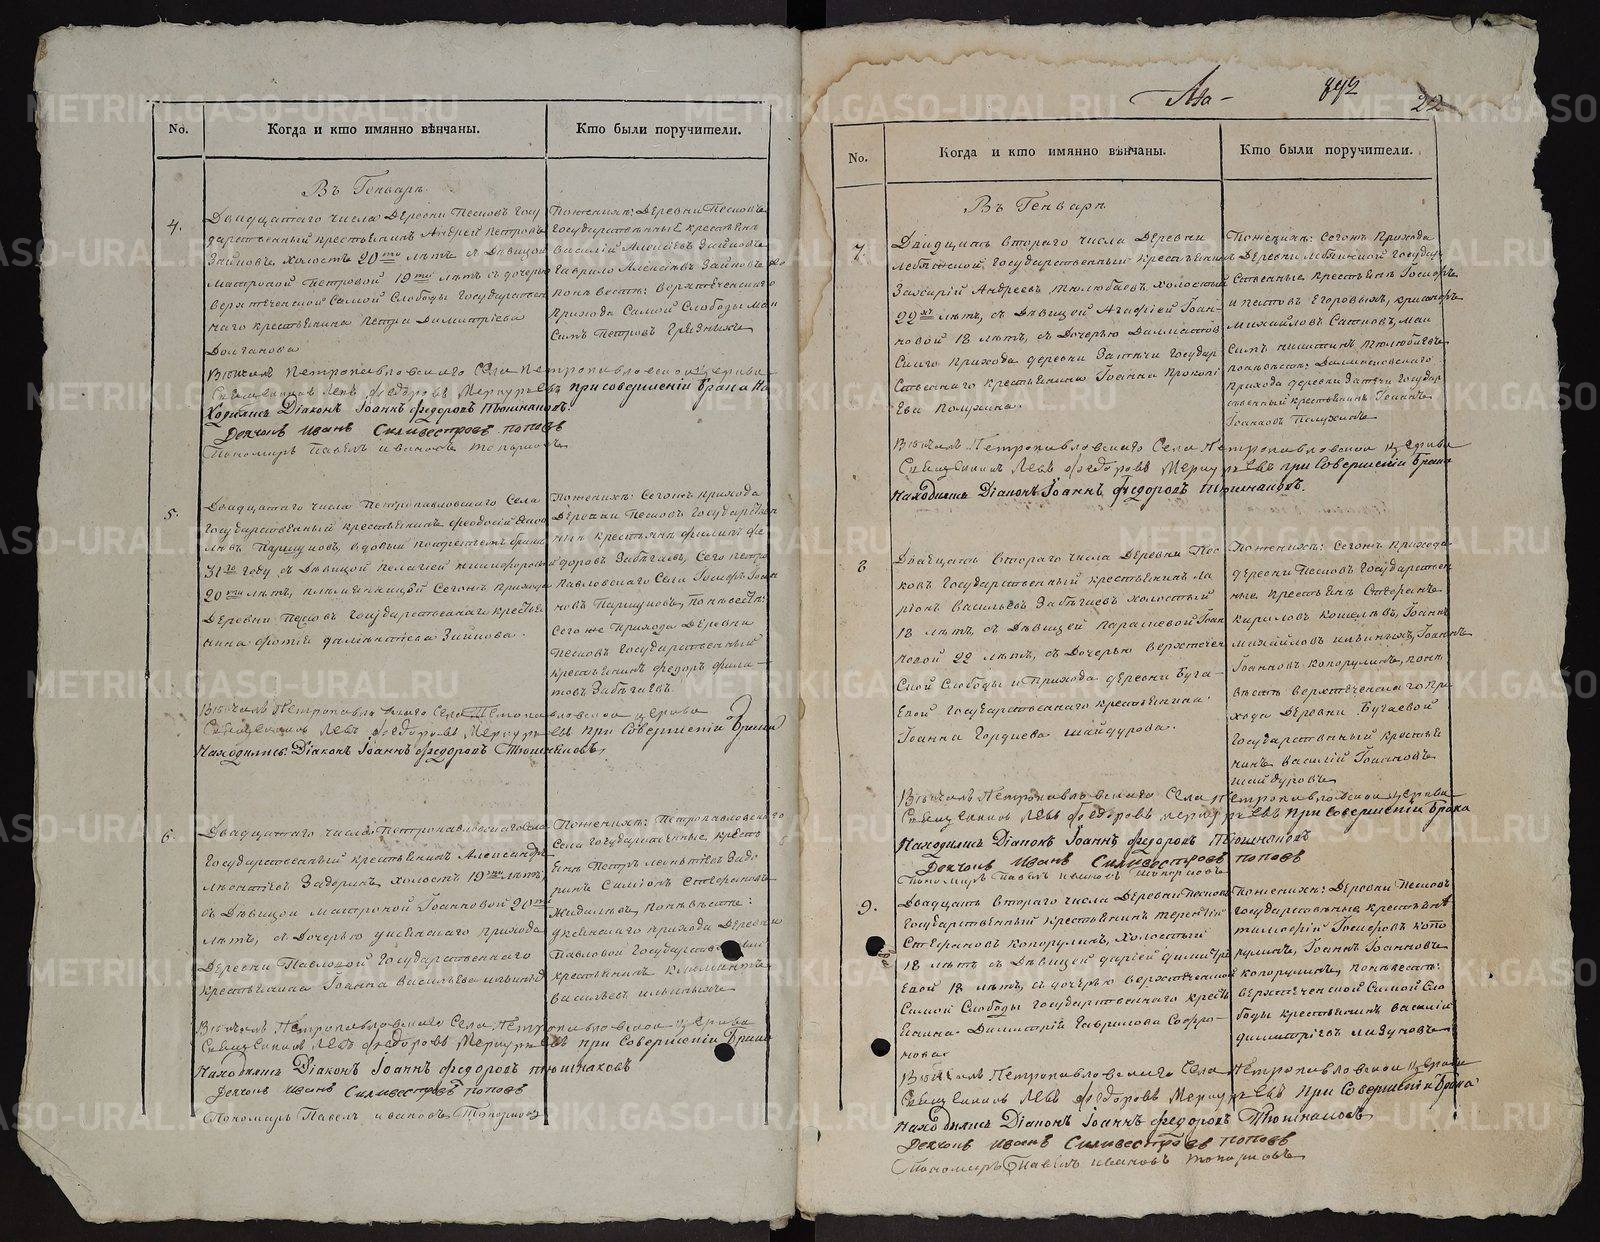 No.
Когда и кто имянно вѣнчаны.
Кто были поручители.
Въ Генварѣ
4.
Двадцатаго числа Деревни Песковъ Госу
дарственный крестьянинъ Андрей Петровъ
Зайковъ холостъ 20ти лѣтъ съ дѣвицой
Матроной Петровой 19ти лѣтъ съ дочерью
Верхтеченской Самой Слободы Государствен
наго крестьянина Петра Димитріева
Долганова
По женихѣ: Деревни Песковъ
Государственные крестьяне
Василій Алексѣевъ Зайковъ
Гаврило Алексѣевъ Зайковъ
по невѣстѣ: Верхтеченскаго
прихода Самой Слободы Мак
симъ Петровъ
Вѣнчалъ Петропавловскаго Села Петропавловской церкви
Священникъ Левъ Федоровъ Меркурьевъ при совершеніи Брака На
ходились Діаконъ Іоаннъ Федоровъ Тюшняковъ.
Дьячокъ Иванъ Силивестровъ Поповъ
Пономарь Павелъ Ивановъ Топорковъ
5.
Двадцатаго числа Петропавловскаго Села
Государственный крестьянинъ Феодосій
Паршуковъ, вдовый
31го году, съ дѣвицой Пелагіей Никифоровой
20ти лѣтъ, племянницой Сегожъ прихода
Деревни Песковъ Государственнаго крестья
нина Фотія Галактіева Зайкова.
По женихѣ: Сегожъ прихода
Деревни Песковъ Государствен
ные крестьяне Филипъ Фе
доровъ Забѣгаевъ, Сего Петро
павловскаго Села Іосифъ Іоан
новъ Паршуковъ, по невѣстѣ:
Сего же прихода Деревни
Песковъ Государственный
крестьянинъ Федоръ Фила-
товъ Забѣгаевъ.
Вѣнчалъ Петропавловскаго Села Петропавловской церкви
Священникъ Левъ Федоровъ Меркурьевъ при Совершеніи Брака
Находились: Діаконъ Іоаннъ Федоровъ Тюшняковъ,
6.
Двадцатаго числа Петропавловскаго Села
Государственный крестьянинъ Александръ
Леонтіевъ Задоринъ холостъ 19ти лѣтъ,
съ дѣвицой Матроной Іоанновой 20ти
лѣтъ, съ дочерью Уксянскаго прихода
Деревни Павловой Государственнаго
крестьянина Іоанна Васильева Ильиныхъ
По женихѣ: Петропавловскаго
Села Государственные кресть
яне Петръ Леонтіевъ Задо
ринъ Симіонъ Стефановъ
Жидилевъ, по невѣстѣ:
Уксянскаго прихода Деревни
Павловой Государственный
крестьянинъ Климентъ
Васильевъ Ильиныхъ
Вѣнчалъ Петропавловскаго Села Петропавловской церкви
Священникъ Левъ Федоровъ Меркурьевъ при Совершеніи Брака
Находились Діаконъ Іоаннъ Федоровъ Тюшняковъ
Дьячокъ Иванъ Силивестровъ Поповъ
Пономарь Павелъ Ивановъ Топорковъ
892
22
No.
Когда и кто имянно вѣнчаны.
Кто были поручители.
Въ Генварѣ
7.
Двадцать втораго числа Деревни
Лебяжской, Государственный крестьянинъ
Захарій Андреевъ Тюлюбаевъ холостый
22хъ лѣтъ, съ дѣвицей Агафіей Іоан-
новой 18 лѣтъ, съ дочерью Далматов
скаго прихода деревни Затечи Государ
ственнаго крестьянина Іоанна Прокопі
ева Полухина.
По женихѣ: Сегожъ прихода
Деревни Лебяжской Государ
ственные крестьяне Іосифъ
и Пестовъ Егоровыхъ,
Михайловъ
симъ Никитинъ Тюлюбаевъ
по невѣстѣ: Далматовскаго
прихода деревни Затечи Государ
ственный крестьянинъ Іоаннъ
Іоанновъ Полухинъ
Вѣнчалъ Петропавловскаго Села Петропавловской церкви
Священникъ Левъ Федоровъ Меркурьевъ при Совершеніи Брака
Находились Діаконъ Іоаннъ Федоровъ Тюшняковъ.
8
Двадцать втораго числа Деревни Пес
ковъ Государственный крестьянинъ Ла
ріонъ Васильевъ Забѣгаевъ холостый
18 лѣтъ, съ дѣвицей Параскевой Іоан
новой 22 лѣтъ, съ дочерью Верхтечен
ской Слободы и прихода деревни Буга-
евой Государственнаго крестьянина
Іоанна Гордиева Шайдурова.
По женихѣ: Сегожъ прихода
деревни Песковъ Государствен
ные крестьяне Стефанъ
Кириловъ Кошелевъ, Іоаннъ
Михайловъ Ильиныхъ, Іоаннъ
Іоанновъ Копорулинъ, по не
вѣстѣ Верхтеченскаго при
хода Деревни Бугаевой
Государственный крестья
нинъ Василій Іоанновъ
Шайдуровъ
Вѣнчалъ Петропавловскаго Села Петропавловской церкви
Священникъ Левъ Федоровъ Меркурьевъ при Совершеніи Брака
Находились Діаконъ Іоаннъ Федоровъ Тюшняковъ
Дьячокъ Иванъ Силивестровъ Поповъ
Пономарь Павелъ Ивановъ Топорковъ
9.
Двадцать втораго числа Деревни Песковъ
Государственный крестьянинъ Терентій
Стефановъ Копорулинъ, холостый
18 лѣтъ съ дѣвицей Дарьей Димитрі
евой 18 лѣтъ, съ дочерью Верхтеченской
Самой Слободы Государственнаго кресть
янина Димитрія Гаврилова Софро-
нова
По женихѣ: Деревни Песковъ
Государственные крестьяне
Тимофей Іосифовъ Копо
рулинъ, Іоаннъ Іоанновъ
Копорулинъ, по невѣстѣ:
Верхтеченской Самой Сло
боды крестьянинъ Василій
Димитріевъ Лазуковъ
Вѣнчалъ Петропавловскаго Села Петропавловской церкви
Священникъ Левъ Федоровъ Меркурьевъ при Совершеніи Брака
Находились Діаконъ Іоаннъ Федоровъ Тюшняковъ
Дьячокъ Иванъ Силивестровъ Поповъ
Пономарь Павелъ Ивановъ Топорковъ
METRIKI.GASO-URAL.RU